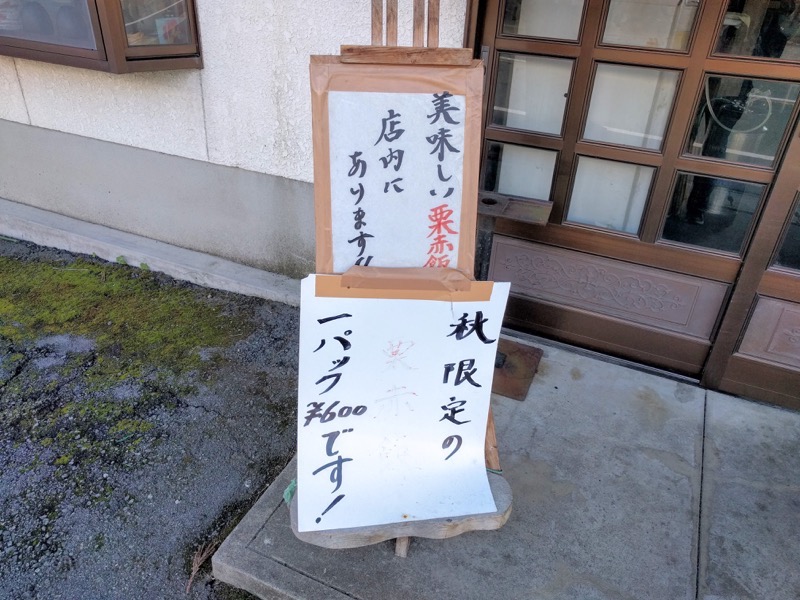 美味しい栗赤飯
店内に
あります!!
秋限定の
栗赤飯
一パック¥600です!